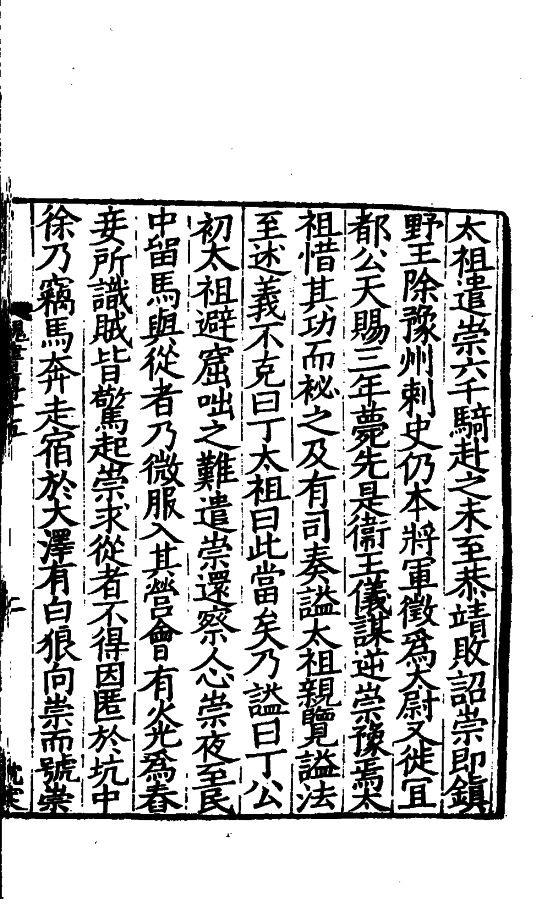 太祖遣崇六千騎赴之未至恭靖敗詔崇即鎮
野王除豫州刺史仍本將軍徵爲太尉又徙宜
都公天賜三年薨先是衞王儀謀逆崇豫焉太
祖惜其功而祕之及有司奏謚太祖親覽謚法
至述義不克曰丁太祖曰此當矣乃謚曰丁公
初太祖避窟咄之難遣崇還察人心崇夜至民
中留馬與從者乃微服入其營會有火光爲舂
妾所識賊皆驚起崇求從者不得因匿於坑中
徐乃竊馬奔走宿於大澤有白狼向崇而號崇